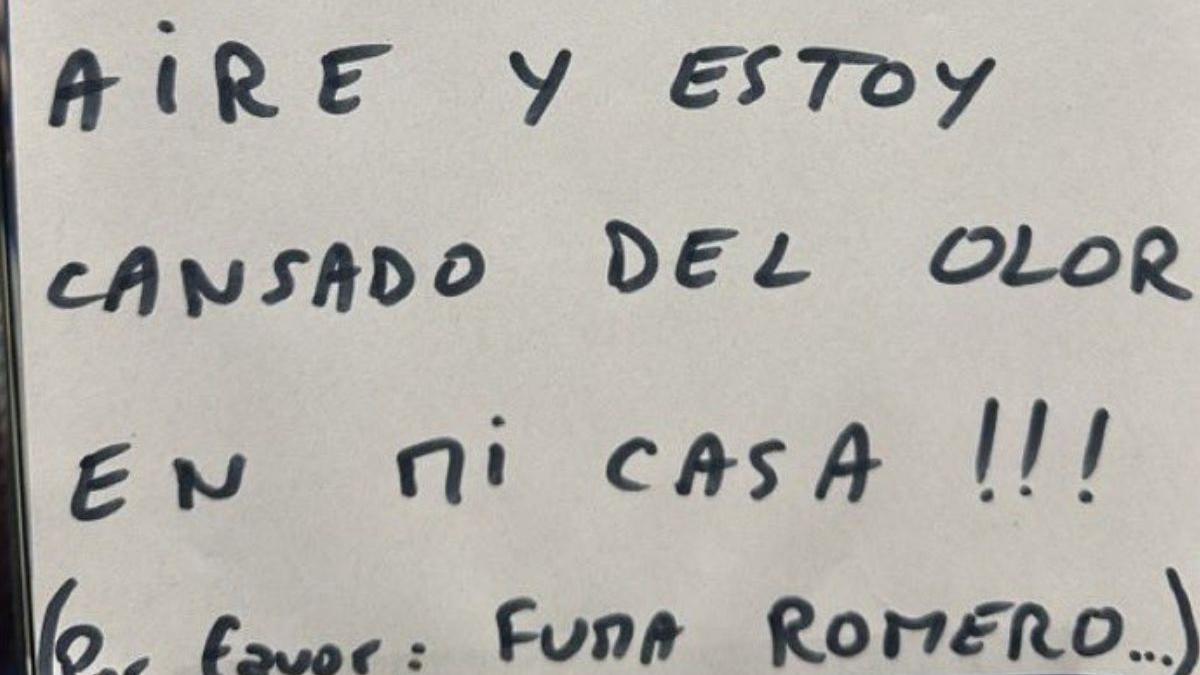 AiRE Y ESTOY
CANSADO DEL OLOR
EN Mi CASA !!!
(Por favor: FUMA ROMERO...)